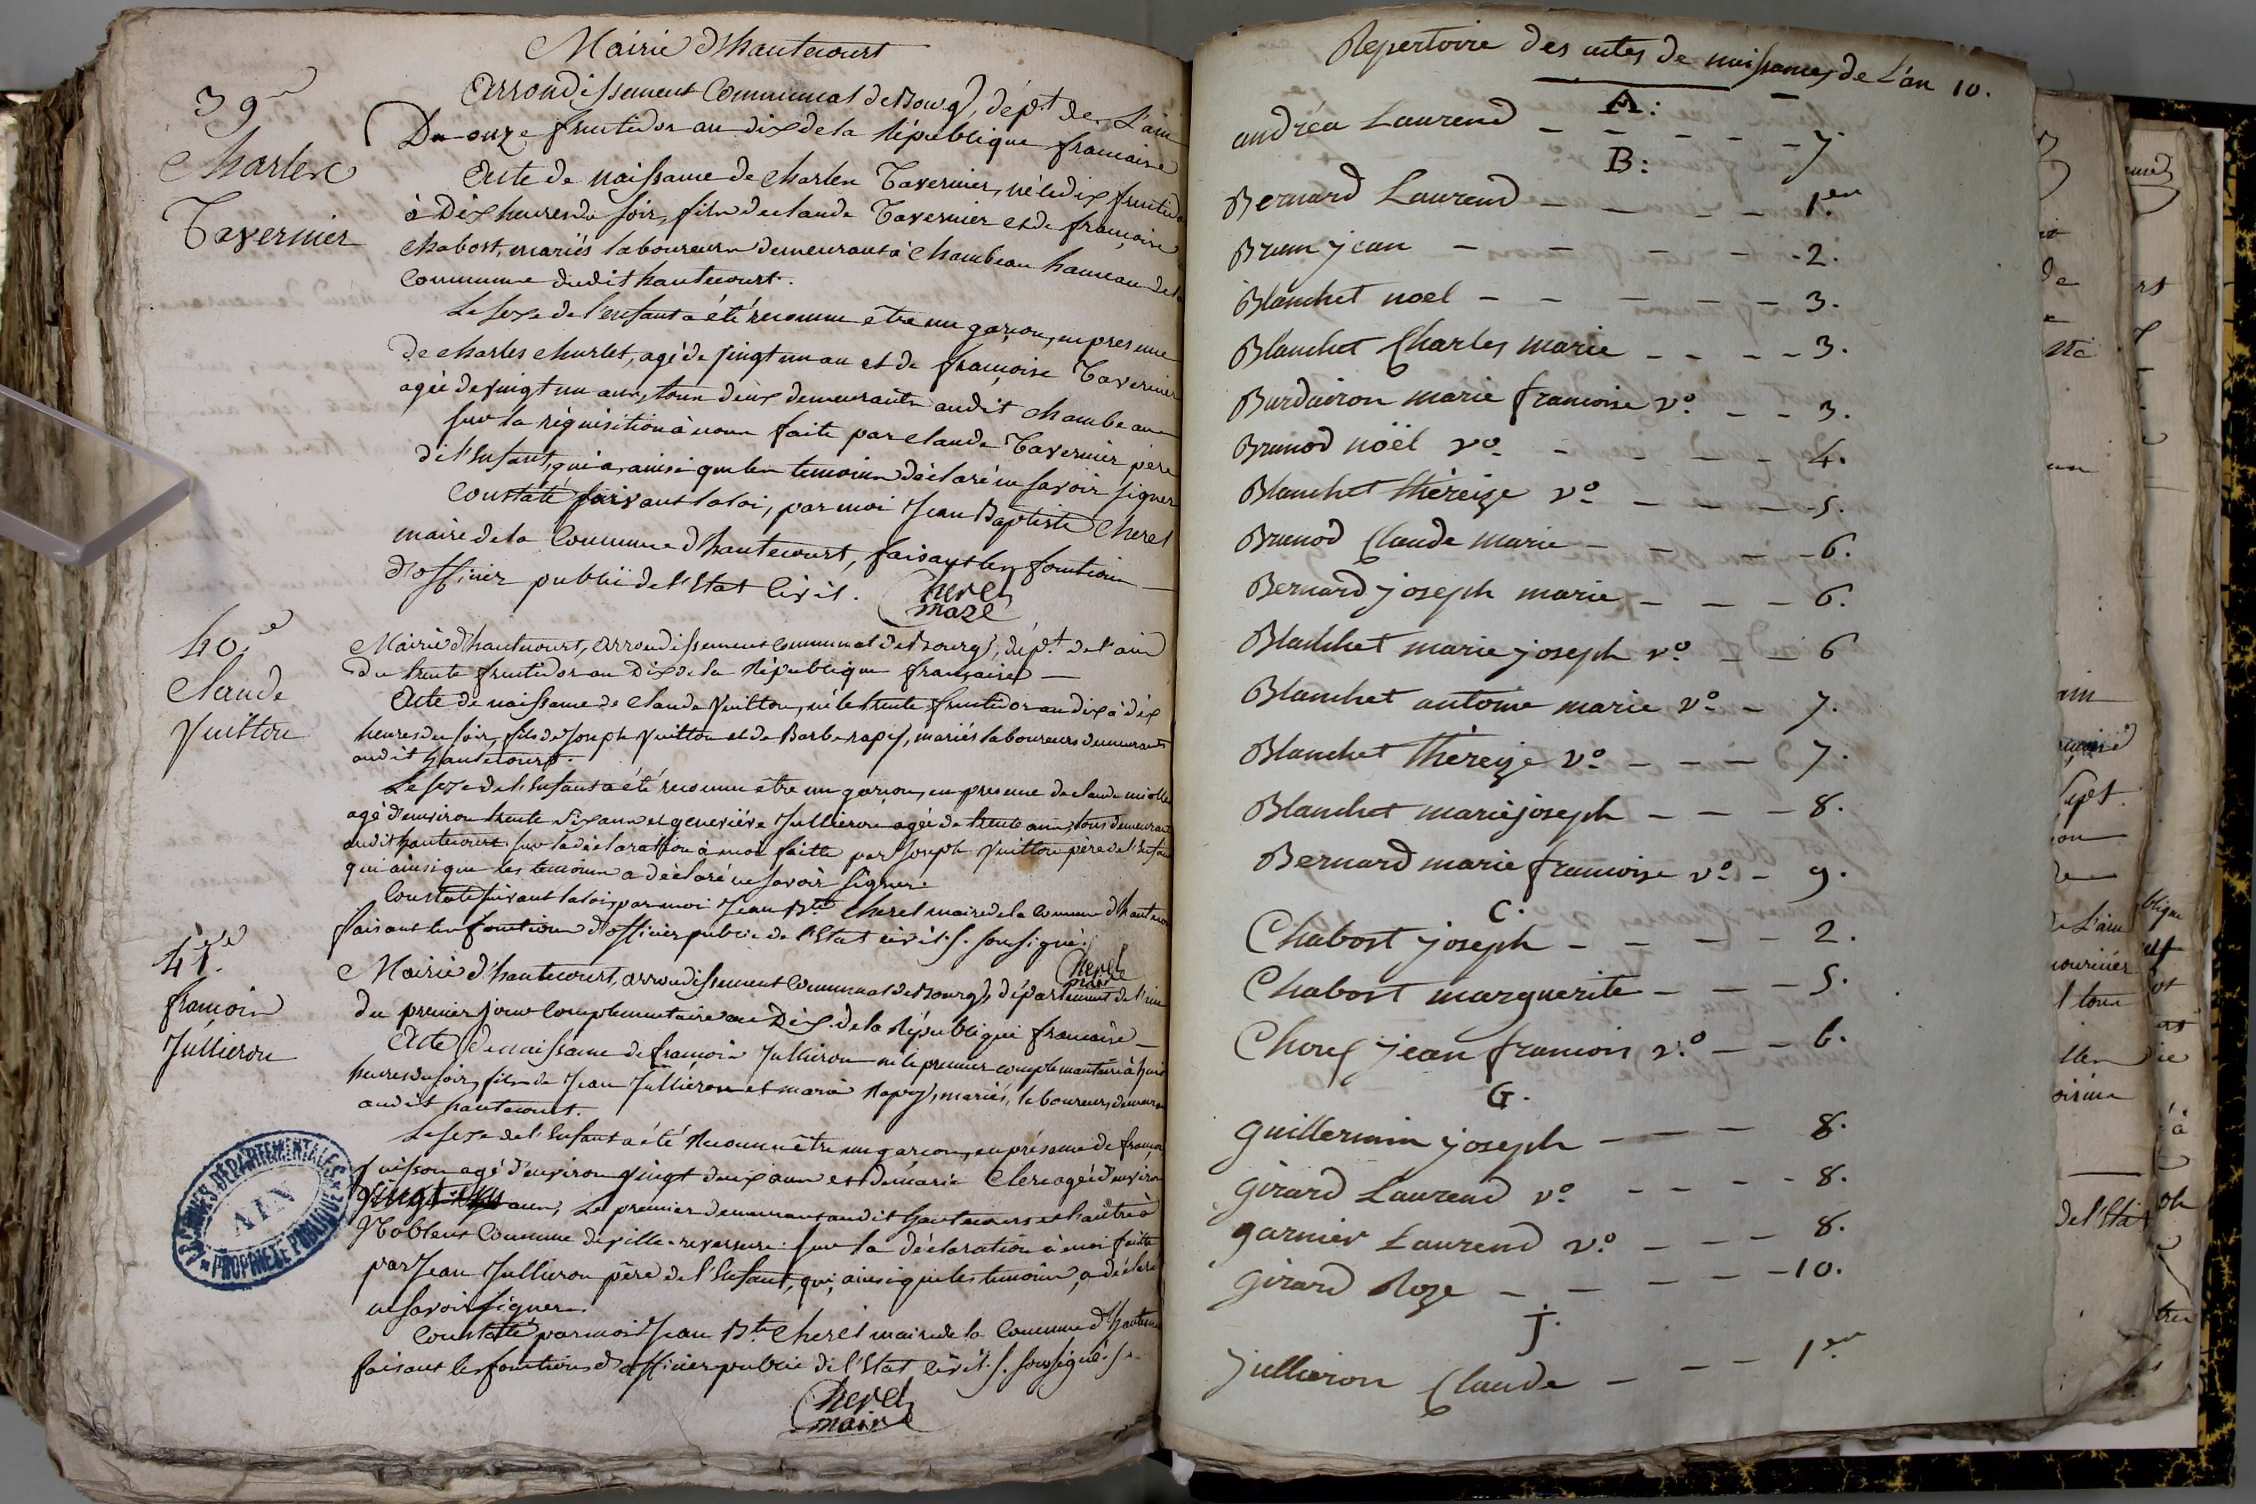 Mairie d'hautecourt
Arrondissement Communal de Bourg, dép.t de L'ain
39e
Du onze fructidor an dix de la République francaise
Charles
Tavernier
Acte de naissance de Charles Tavernier, né le dix fructidor
à Dix heures du soir, fils de claude Tavernier et de françoise
Chabost, mariés laboureurs demeurant à Chambeau hameau de la
Commune dudit hautecourt.
Le sexe de l'enfant a été reconnu etre un garçon, en presence
de charles churlet, agé de vingt un an et de françoise Tavernier
agée de vingt un ans, tous deux demeurants audit Chambeau
sur la réquisition à nous faite par claude Tavernier père
de l'Enfant, qui a, ainsi que les temoins déclaré ne savoir signer
Constaté suivant la loi, par moi Jean Baptiste Cherel
maire de la Commune d'hautecourt, faisant les fonctions
d'officier public de l'Etat Civil.
Cherel
maire
40e
Claude
Vuitton
Mairie d'hautecourt, arrondissement Communal de Bourg, dép.t de l'ain
du trente fructidor an Dix de la République française
Acte de naissance de Claude Vuitton, né le trente fructidor an dix à dix
heures du soir, fils de Joseph Vuitton et de Barbe rapy, mariés laboureurs demeurants
audit hautecourt.
Le sexe de l'Enfant a été reconnu etre un garçon, en presence de claude
agé d'environ trente six ans et geneviéve Jullieron agée de trente ans, tous demeurant
audit hautecourt sur la déclaration à moi faitte par Joseph Vuitton père de l'Enfant
qui ainsi que les temoins a déclaré ne savoir signer.
Constaté suivant la loi, par moi Jean Bte Cherel maire de la Commune d'hautecourt
faisant les fonctions d'officier public de l'Etat civil. soussigné.
Cherel
maire
41e
françois
Jullieron
Mairie d'hautecourt, arrondissement Communal de Bourg, département de l'ain
du premier jour Complementaire an Dix de la République francaise
Acte de naissance de françois Jullieron né le premier complementaire à huit
heures du soir, fils de Jean Jullieron et marie Rapy, mariés, laboureurs, demeurant
audit hautecourt.
Le sexe de l'Enfant a été Reconnu être un garçon, en présence de françois
agé d'environ vingt deux ans et de marie Clerc agée d'environ
ans, Le premier demeurant audit hautecourt et l'autre à
Noblens Commune de ville-reversure. sur la déclaration à moi faitte
par Jean Jullieron père de l'Enfant, qui, ainsi que les temoins, a déclaré
ne savoir signer.
Constaté par moi Jean Bte Cherel maire de la Commune d'hautecourt
faisant les fonctions d'officier public de l'Etat civil. soussigné.
Cherel
maire
ARCHIVES DÉPARTEMENTALES
AIN
PROPRIÉTÉ PUBLIQUE
Repertoire des actes de naissances de L'an 10.
A:
andréa Laurend - - - - - 7.
B:
Bernard Laurend - - - - - 1.er
Brun jean - - - - - - 2.
Blanchet noel - - - - - - 3.
Blanchet Charles marie - - - - 3.
Burdairon marie francoise vo. - - 3.
Brunod noël vo. - - - - - 4.
Blanchet théreize vo. - - - - 5.
Brunod Claude marie - - - - 6.
Bernard joseph marie - - - 6.
Blanchet marie joseph vo. - - 6
Blanchet antoine marie vo. - 7.
Blanchet théreize vo. - - - 7.
Blanchet marie joseph - - - 8.
Bernard marie francoise vo. - 9.
C.
Chabost joseph - - - - - 2.
Chabost marguerite - - - 5.
Cherel jean francois vo. - - 6.
G.
guillermin joseph - - - 8.
girard Laurend vo. - - - - 8.
garnier Laurend vo. - - - 8.
girard Roze - - - - - 10.
J.
jullieron Claude - - - 1er